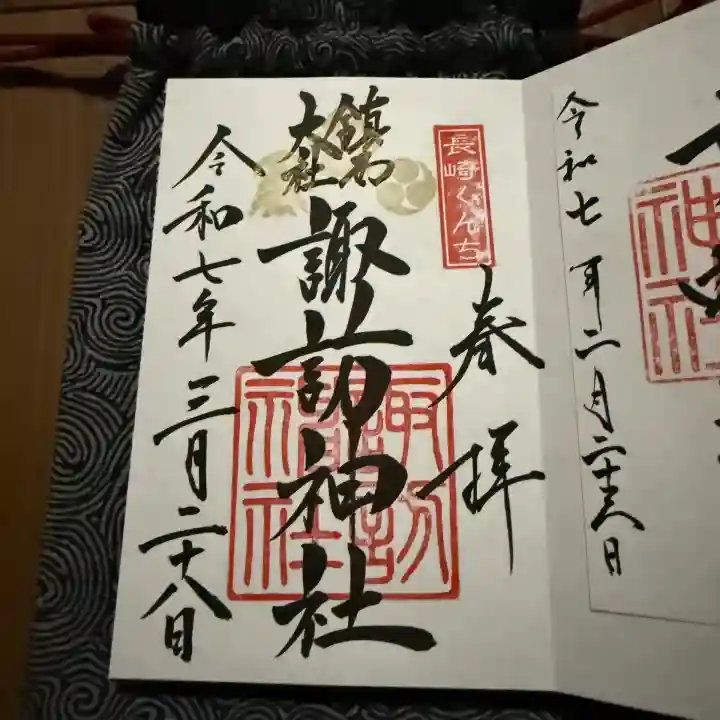 神社
令和七年二月二十六日
長崎くんち
奉拝
鎮西
大社
諏訪神社
諏訪
神社
令和七年三月二十八日